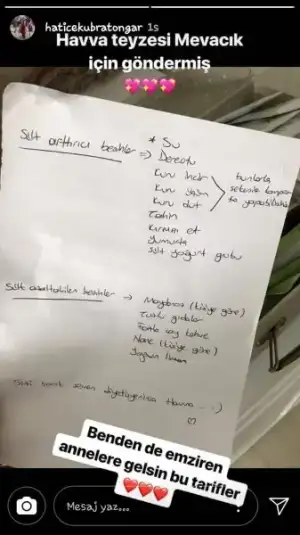 haticekubratongar 1s
Havva teyzesi Mevacık
için göndermiş
Süt arttırıcı besinler => * Su
Dereotu
Kuru incir
Kuru üzüm
Kuru dut
bunlarla
şekersiz komposto
da yapabilirsin
Tahin
Kırmızı et
Yumurta
Süt yoğurt grubu
Süt azaltabilen besinler → Maydanoz (kişiye göre)
Turşu gıdalar
Fazla çay kahve
Nane (kişiye göre)
Yoğun limon
Seni seven diyetisyenin Havva :)
Benden de emziren
annelere gelsin bu tarifler
Mesaj yaz...